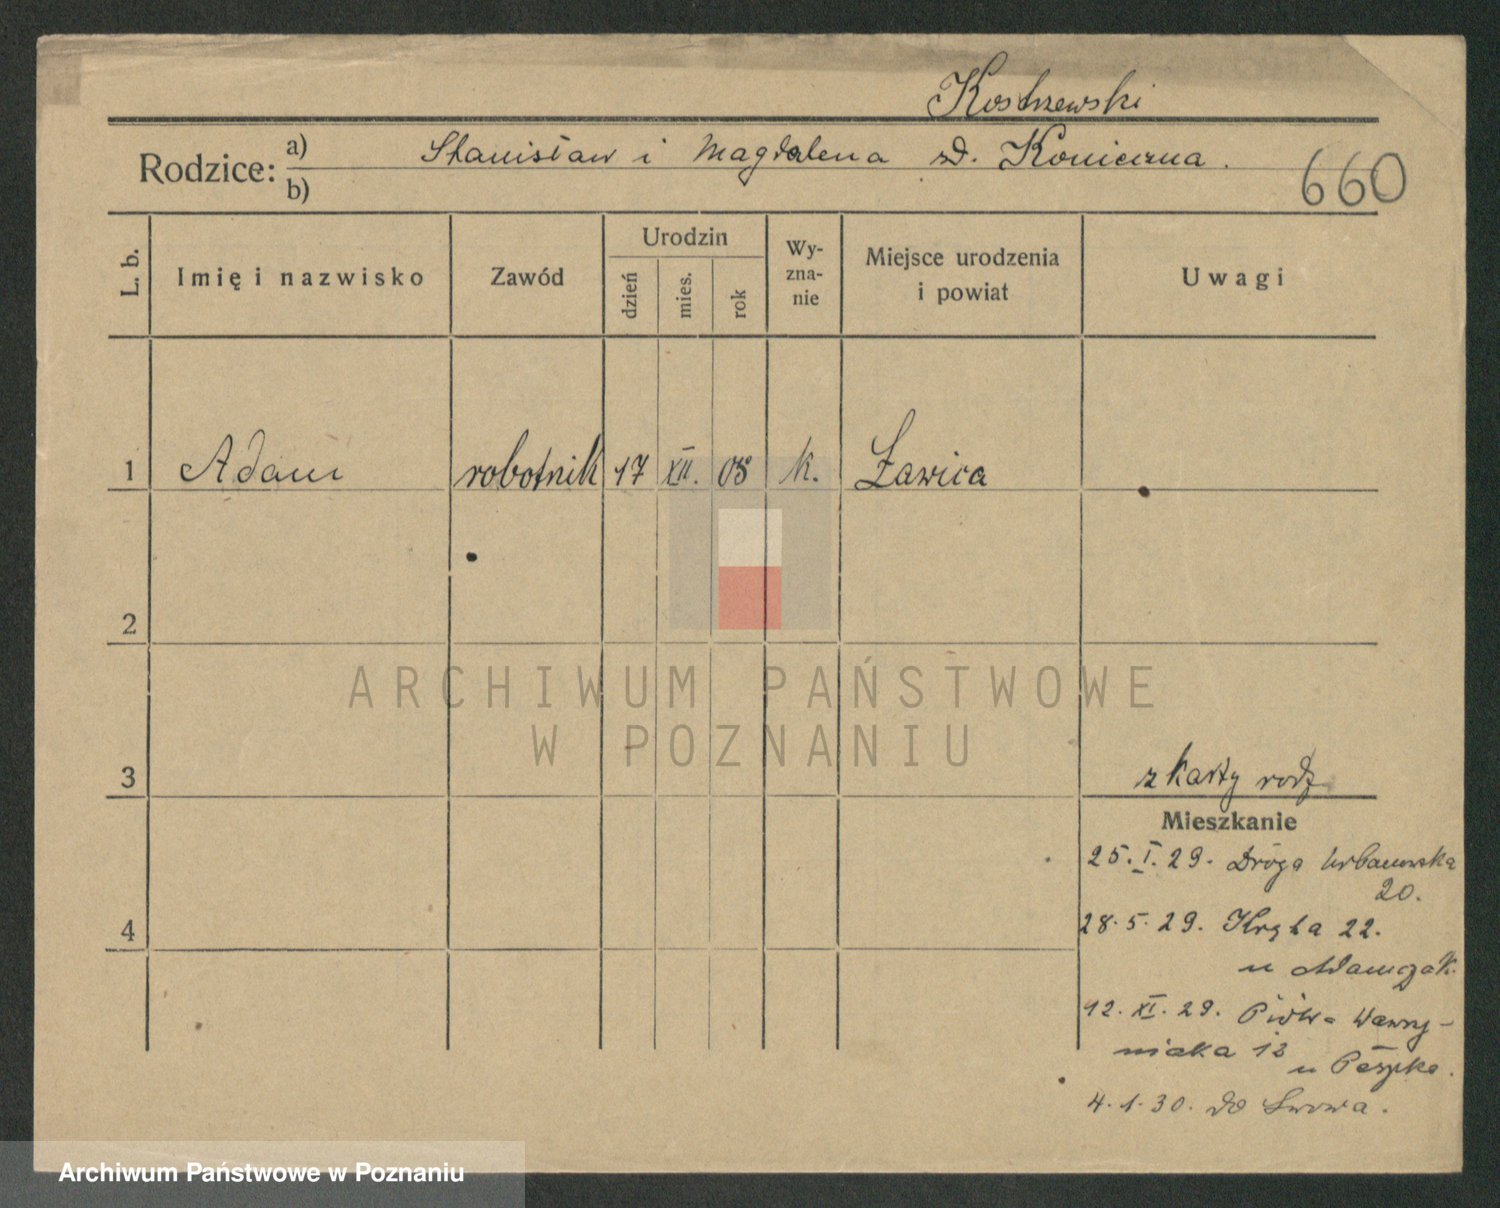 Kostrzewski
Rodzice: a) Stanisław i Magdalena zd. Konieczna.
b)
660
L. b.
Imię i nazwisko
Zawód
Urodzin
dzień
mies.
rok
Wy-
zna-
nie
Miejsce urodzenia
i powiat
Uwagi
1 Adam robotnik 17 XII. 08 k. Ławica
2
ARCHIWUM PAŃSTWOWE
W POZNANIU
3
z karty rodz
Mieszkanie
25. I. 29. Droga Urbanowska
20.
4
28. 5. 29. Kręta 22.
u Adamczak.
12. XI. 29. Piotra Wawrzy-
niaka 13
u Peszke.
4. 1. 30. do Lwowa.
Archiwum Państwowe w Poznaniu